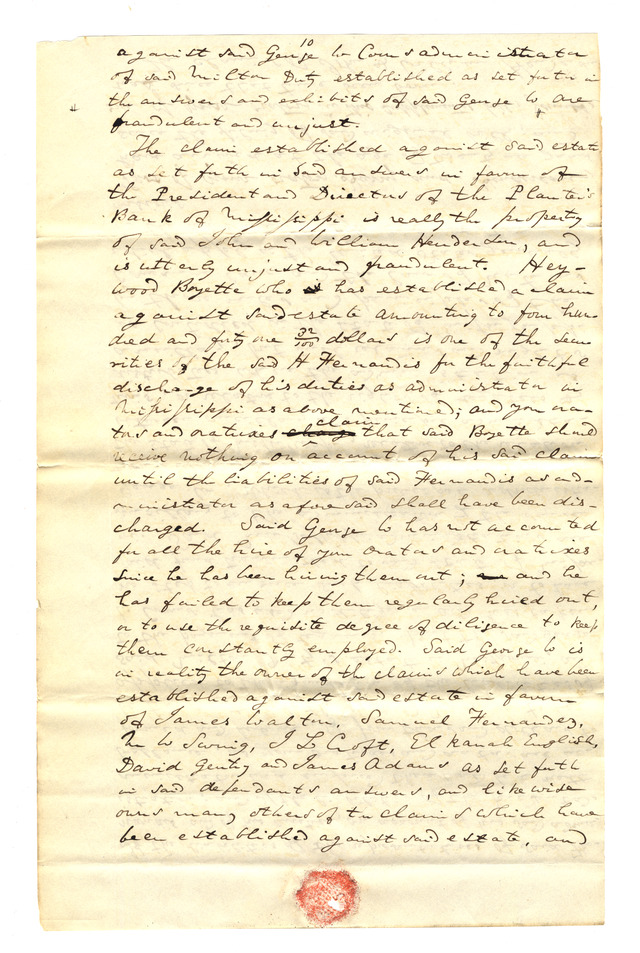 10
against said George W Coons administrator
of said Milton Duty established as set futh in
the answers and exhibits of said George W are
fraudulent and unjust.
The claim established against said estate
as set futh in said answers in favor of
the President and Directors of the Planters
Bank of Mississippi is really the property
of said John and William Henderson, and
is utterly unjust and fraudulent. Hey-
wood Boyette who has established a claim
against said estate amounting to four hun-
dred and forty one 32/100 dollars is one of the secu-
rities of the said H Fernandis for the faithful
discharge of his duties as administrator in
Mississippi as above mentioned; and your ora-
tors and oratrixes claim that said Boyette should
receive nothing on account of his said claim
until the liabilities of said Fernandis as ad-
ministrator as aforesaid shall have been dis-
charged. Said George W has not accounted
for all the hire of your orators and oratrixes
since he has been hiring them out; and he
has failed to keep them regularly hired out,
or to use the requisite degree of diligence to keep
them constantly employed. Said George W is
in reality the owner of the claims which have been
established against said estate in favor
of James Walton, Samuel Fernandez,
W, J L Croft, Elkanah English,
David Gentry and James Adams as set futh
in said defendants answers, and likewise
owns many others of the claims which have
been established against said estate, and